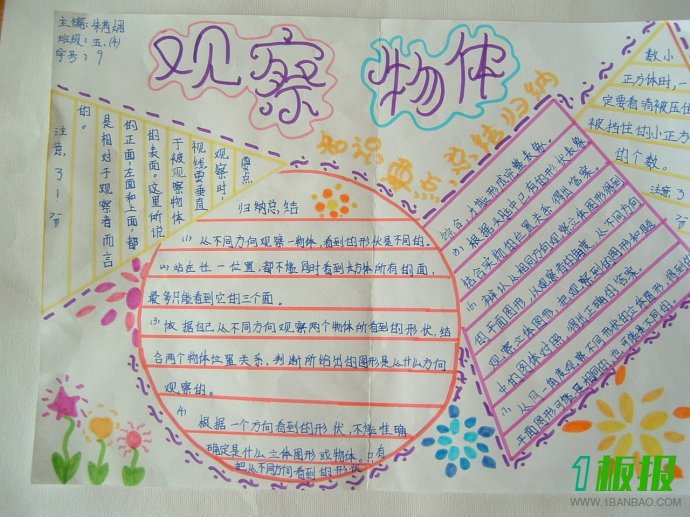 主编:
班级:五、(4)
学号:9
观察 物体
知识要点总结归纳
要点
观察时,
视线要垂直
于被观察物体
的表面。这里所说
的正面,左面和上面,都
是相对于观察者而言
的。
注意了!
归纳总结
(1) 从不同方向观察一物体,看到的形状是不同的。
(2) 站在任一位置,都不能同时看到长方体所有的面,
最多只能看到它的三个面。
(3) 根据自己从不同方向观察两个物体所看到的形状,结
合两个物体位置关系,判断所给出的图形是从什么方向
观察的。
(4) 根据一个方向看到的形状,不能准确
确定是什么立体图形或物体。只有
把从不同方向看到的形状
综合,才能形成完整表象。
(5) 根据实验中已有的形状表象,
结合实物的位置关系,得出答案
(6) 辨认从相同方向观察立体图形得到
的平面图形,从观察者的角度,从不同方向
观察立体图形,把观察到的图形和题
中的图体对照,得出正确的答案。
(7) 从同一角度观察不同形状的立体图形,得到的
平面图形可能是相同的,也可能是不同的。
数小
正方体时,一
定要看清被压住
被挡住的小正方
的个数。
注意了
1板报
WWW.1BANBAO.COM